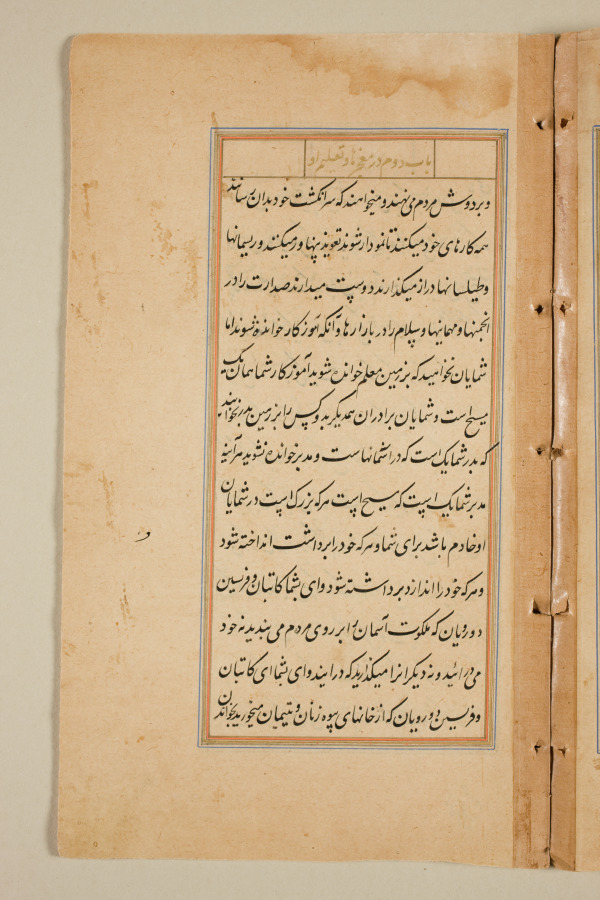 باب دوم در معجزها و تعلیم او
و بر دوش مردم می نهند و نمیخواهند که سر انگشت خود بدان رسانند
همه کارهای خود میکنند تا نمودار شوند تعویذ پهناور میکنند و ریسمانها
و طیلسانها دراز میگذارند دوست میدارند صدارت را در
انجمنها و مهمانیها و سلام را در بازارها و آنکه آموزکار خوانده شوند اما
شمایان نخواهید که بر زمین معلم خوانده شوید آموزکار شما همان یک
مسیح است و شمایان برادران همدیگرید و کس را بر زمین پدر نخوانید
که پدر شما یک است که در آسمانهاست و مدبر خوانده نشوید هر آینه
مدبر شما یک است که مسیح است هر که بزرک است در شمایان
او خادم باشد برای شما و هر که خود را برداشت انداخته شود
و هر که خود را اندازد برداشته شود وای بشما کاتبان و فریسین
دورویان که ملکوت آسمان را بر روی مردم می بندید نه خود
می درآئید و نه دیگرانرا میگذارید که درآیند وای بشما ای کاتبان
و فریسین دورویان که از خانهای بیوه زنان و یتیمان میخورید بخواندن
و